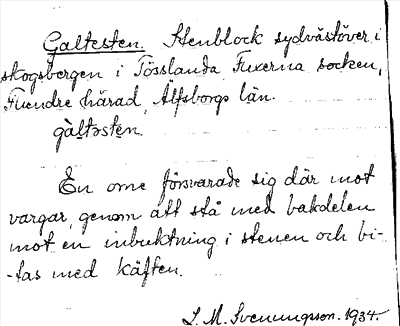 Galtesten. Stenblock sydvästöver i
skogsbergen i Tösslanda Fuxerna socken,
Flundre härad, Älfsborgs län.
gàltəstẹn.
En orne försvarade sig där mot
vargar, genom att stå med bakdelen
mot en inbuktning i stenen och bi-
-tas med käften.
L. M. Svenungsson. 1934.